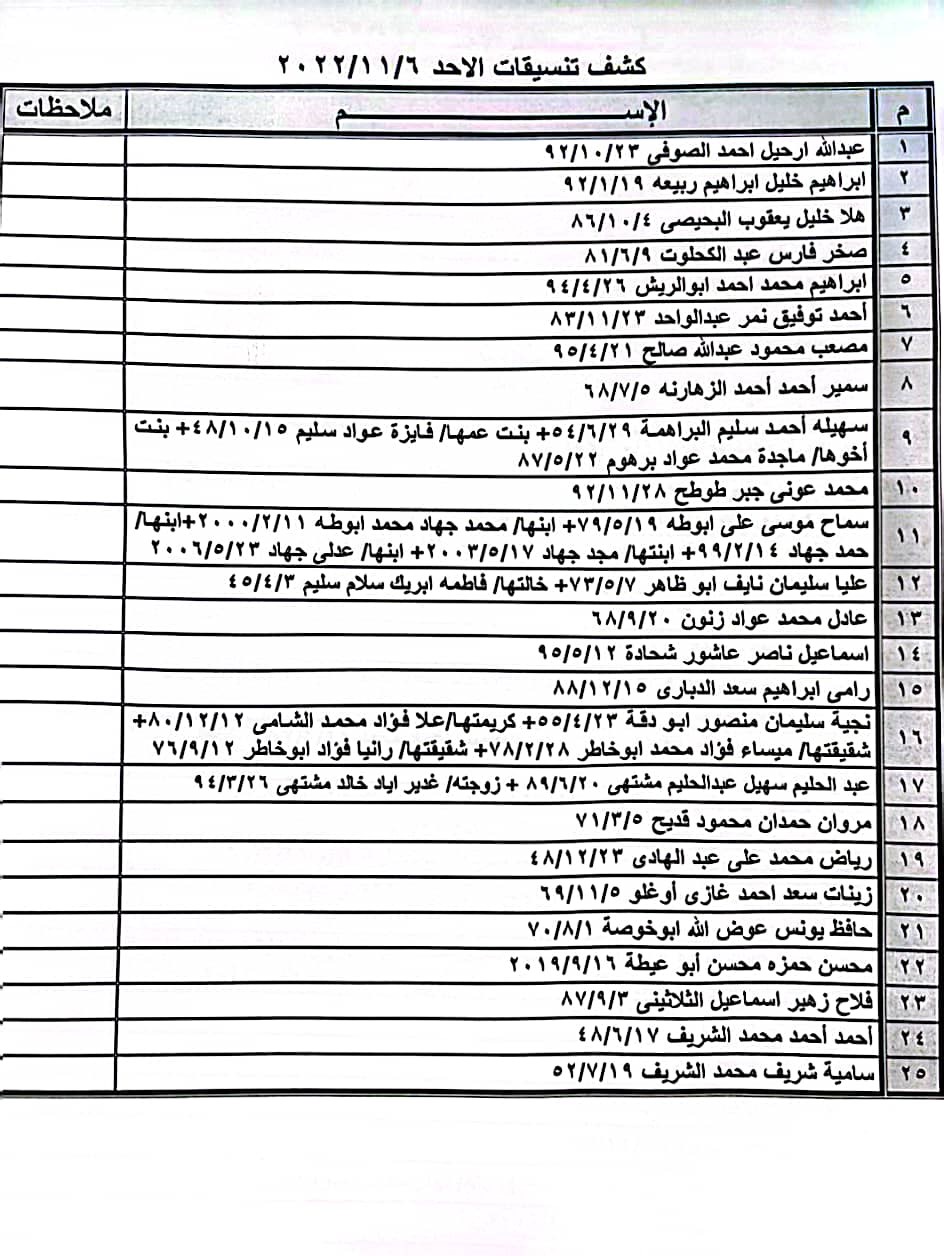 كشف تنسيقات الاحد ٢٠٢٢/١١/٦
م الإســــــم ملاحظات
١ عبدالله ارحيل احمد الصوفى ٩٢/١٠/٢٣
٢ ابراهيم خليل ابراهيم ربيعه ٩٢/١/١٩
٣ هلا خليل يعقوب البحيصى ٨٦/١٠/٤
٤ صخر فارس عبد الكحلوت ٨١/٦/٩
٥ ابراهيم محمد احمد ابوالريش ٩٤/٤/٢٦
٦ أحمد توفيق نمر عبدالواحد ٨٣/١١/٢٣
٧ مصعب محمود عبدالله صالح ٩٥/٤/٢١
٨ سمير أحمد أحمد الزهارنه ٦٨/٧/٥
٩ سهيله أحمد سليم البراهمة ٥٤/٦/٢٩+ بنت عمها/ فايزة عواد سليم ٤٨/١٠/١٥+ بنت
أخوها/ ماجدة محمد عواد برهوم ٨٧/٥/٢٢
١٠ محمد عونى جبر طوطح ٩٢/١١/٢٨
١١ سماح موسى على ابوطه ٧٩/٥/١٩+ ابنها/ محمد جهاد محمد ابوطه ٢٠٠٠/٢/١١+ابنها/
حمد جهاد ٩٩/٢/١٤+ ابنتها/ مجد جهاد ٢٠٠٣/٥/١٧+ ابنها/ عدلى جهاد ٢٠٠٦/٥/٢٣
١٢ عليا سليمان نايف ابو ظاهر ٧٣/٥/٧+ خالتها/ فاطمه ابريك سلام سليم ٤٥/٤/٣
١٣ عادل محمد عواد زنون ٦٨/٩/٢٠
١٤ اسماعيل ناصر عاشور شحادة ٩٥/٥/١٢
١٥ رامى ابراهيم سعد الدبارى ٨٨/١٢/١٥
١٦ نجية سليمان منصور ابو دقة ٥٥/٤/٢٣+ كريمتها/علا فؤاد محمد الشامى ٨٠/١٢/١٢+
شقيقتها/ ميساء فؤاد محمد ابوخاطر ٧٨/٢/٢٨+ شقيقتها/ رانيا فؤاد ابوخاطر ٧٦/٩/١٢
١٧ عبد الحليم سهيل عبدالحليم مشتهى ٨٩/٦/٢٠ + زوجته/ غدير اياد خالد مشتهى ٩٤/٣/٢٦
١٨ مروان حمدان محمود قديح ٧١/٣/٥
١٩ رياض محمد على عبد الهادى ٤٨/١٢/٢٣
٢٠ زينات سعد احمد غازى أوغلو ٦٩/١١/٥
٢١ حافظ يونس عوض الله ابوخوصة ٧٠/٨/١
٢٢ محسن حمزه محسن أبو عيطة ٢٠١٩/٩/١٦
٢٣ فلاح زهير اسماعيل الثلاثينى ٨٧/٩/٣
٢٤ أحمد أحمد محمد الشريف ٤٨/٦/١٧
٢٥ سامية شريف محمد الشريف ٥٢/٧/١٩